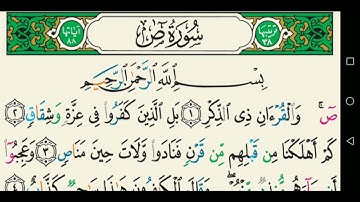 ترتيبها ٣٨ سُورَةُ صٓ آياتها ٨٨
بِسْمِ ٱللَّهِ ٱلرَّحْمَٰنِ ٱلرَّحِيمِ
صٓ ۚ وَٱلْقُرْءَانِ ذِى ٱلذِّكْرِ ﴿١﴾ بَلِ ٱلَّذِينَ كَفَرُوا۟ فِى عِزَّةٍ وَشِقَاقٍ ﴿٢﴾
كَمْ أَهْلَكْنَا مِن قَبْلِهِم مِّن قَرْنٍ فَنَادَوا۟ وَّلَاتَ حِينَ مَنَاصٍ ﴿٣﴾ وَعَجِبُوٓا۟